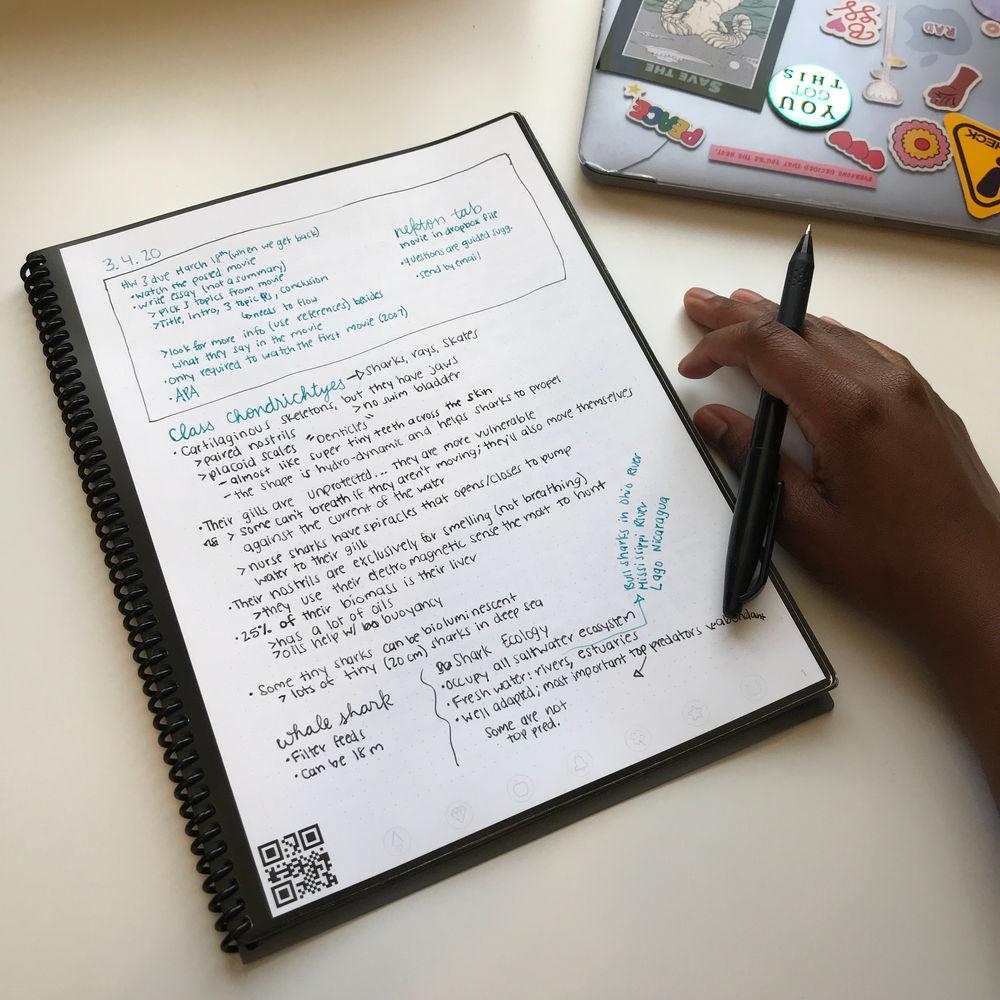 3.4.20
HW 3 due March 18th (when we get back)
• watch the posted movie
• write essay (not a summary)
> Pick 3 topics from movie
> Title, intro, 3 topic Ps, conclusion
↳ needs to flow
> look for more info (use references) besides
what they say in the movie
• only required to watch the first movie (2007)
• APA
nekton tab
movie in dropbox file
• questions are guided sugg.
• send by email
Class Chondrichtyes → sharks, rays, skates
• Cartilaginous skeletons, but they have jaws
> paired nostrils > no swim bladder
> placoid scales "Denticles"
- almost like super tiny teeth across the skin
- the shape is hydro-dynamic and helps sharks to propel
• Their gills are unprotected... they are more vulnerable
> some can't breath if they aren't moving; they'll also move themselves
against the current of the water
> nurse sharks have spiracles that opens/closes to pump
water to their gills
• Their nostrils are exclusively for smelling (not breathing)
> they use their electro magnetic sense the most to hunt
• 25% of their biomass is their liver
> has a lot of oils
> oils help w/ buoyancy
• Some tiny sharks can be bioluminescent
> lots of tiny (20 cm) sharks in deep sea
whale shark
• Filter feeds
• can be 18 m
Shark Ecology
• occupy all saltwater ecosystem
• Fresh water: rivers, estuaries
• well adapted; most important top predators
Some are not
top pred.
Bull sharks in Ohio River
Mississippi River
Lago Nicaragua
1
SAVE THE
YOU
GOT
THIS
PEACE
RAD
EVERYONE DECIDED THAT YOU'RE THE BEST.
CHECK